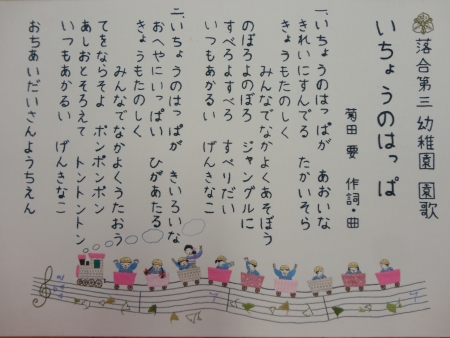 落合第三幼稚園 園歌
いちょうのはっぱ
菊田 要 作詞・曲
一、いちょうのはっぱが あおいな
きれいにすんでる たかいそら
きょうもたのしく
みんなでなかよくあそぼう
のぼろよのぼろ ジャングルに
すべろよすべろ すべりだい
いつもあかるい げんきなこ
二、いちょうのはっぱが きいろいな
おへやにいっぱい ひがあたる
きょうもたのしく
みんなでなかよくうたおう
てをならそよ ポンポンポン
あしおとそろえて トントントン
いつもあかるい げんきなこ
おちあいだいさんようちえん